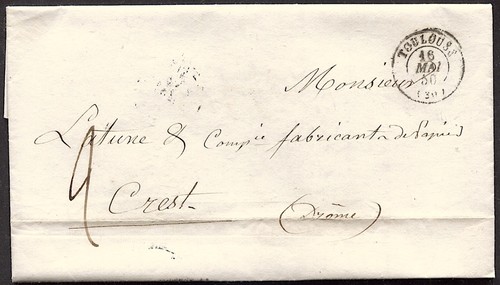 TOULOUSE
16
MAI
50
(30)
Monsieur
Latune & Compie fabricant de Papiers
2
Crest
(Drôme)